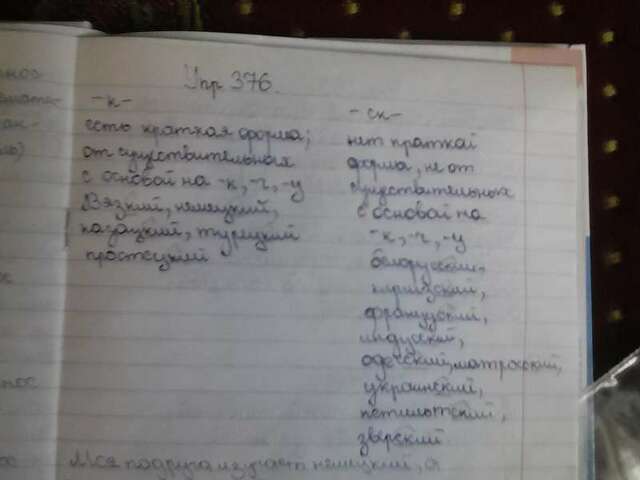 Упр 376.
-к-
есть краткая форма;
от существительных
с основой на -к, -ч, -ц
Вязкий, немецкий,
казацкий, турецкий
простецкий
-ск-
нет краткой
форма, не от
существительных
с основой на
-к, -ч, -ц
белорусский,
киргизский,
французский,
индусский,
одесский, матросский,
украинский,
зверский
Моя подруга изучает немецкий, а